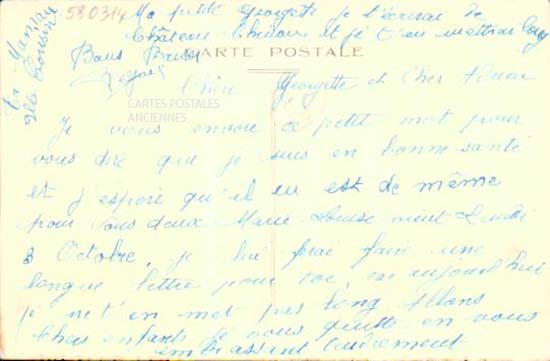 580314 Ma petite Georgette je t'écrirai de
Château Chinon et je t'en mettrai long
Bons Baisers
CARTE POSTALE
Ta Maman
Chère Georgette et Cher
CARTES POSTALES
ANCIENNES
Je vous envoie ce petit mot pour
vous dire que je suis en bonne santé
et j'espère qu'il en est de même
pour vous deux Marie-Louise vient Lundi
3 Octobre, je lui ferai faire une
longue lettre pour toi car aujourd'hui
je ne t'en met pas long Allons
Chers enfants je vous quitte en vous
embrassant tendrement